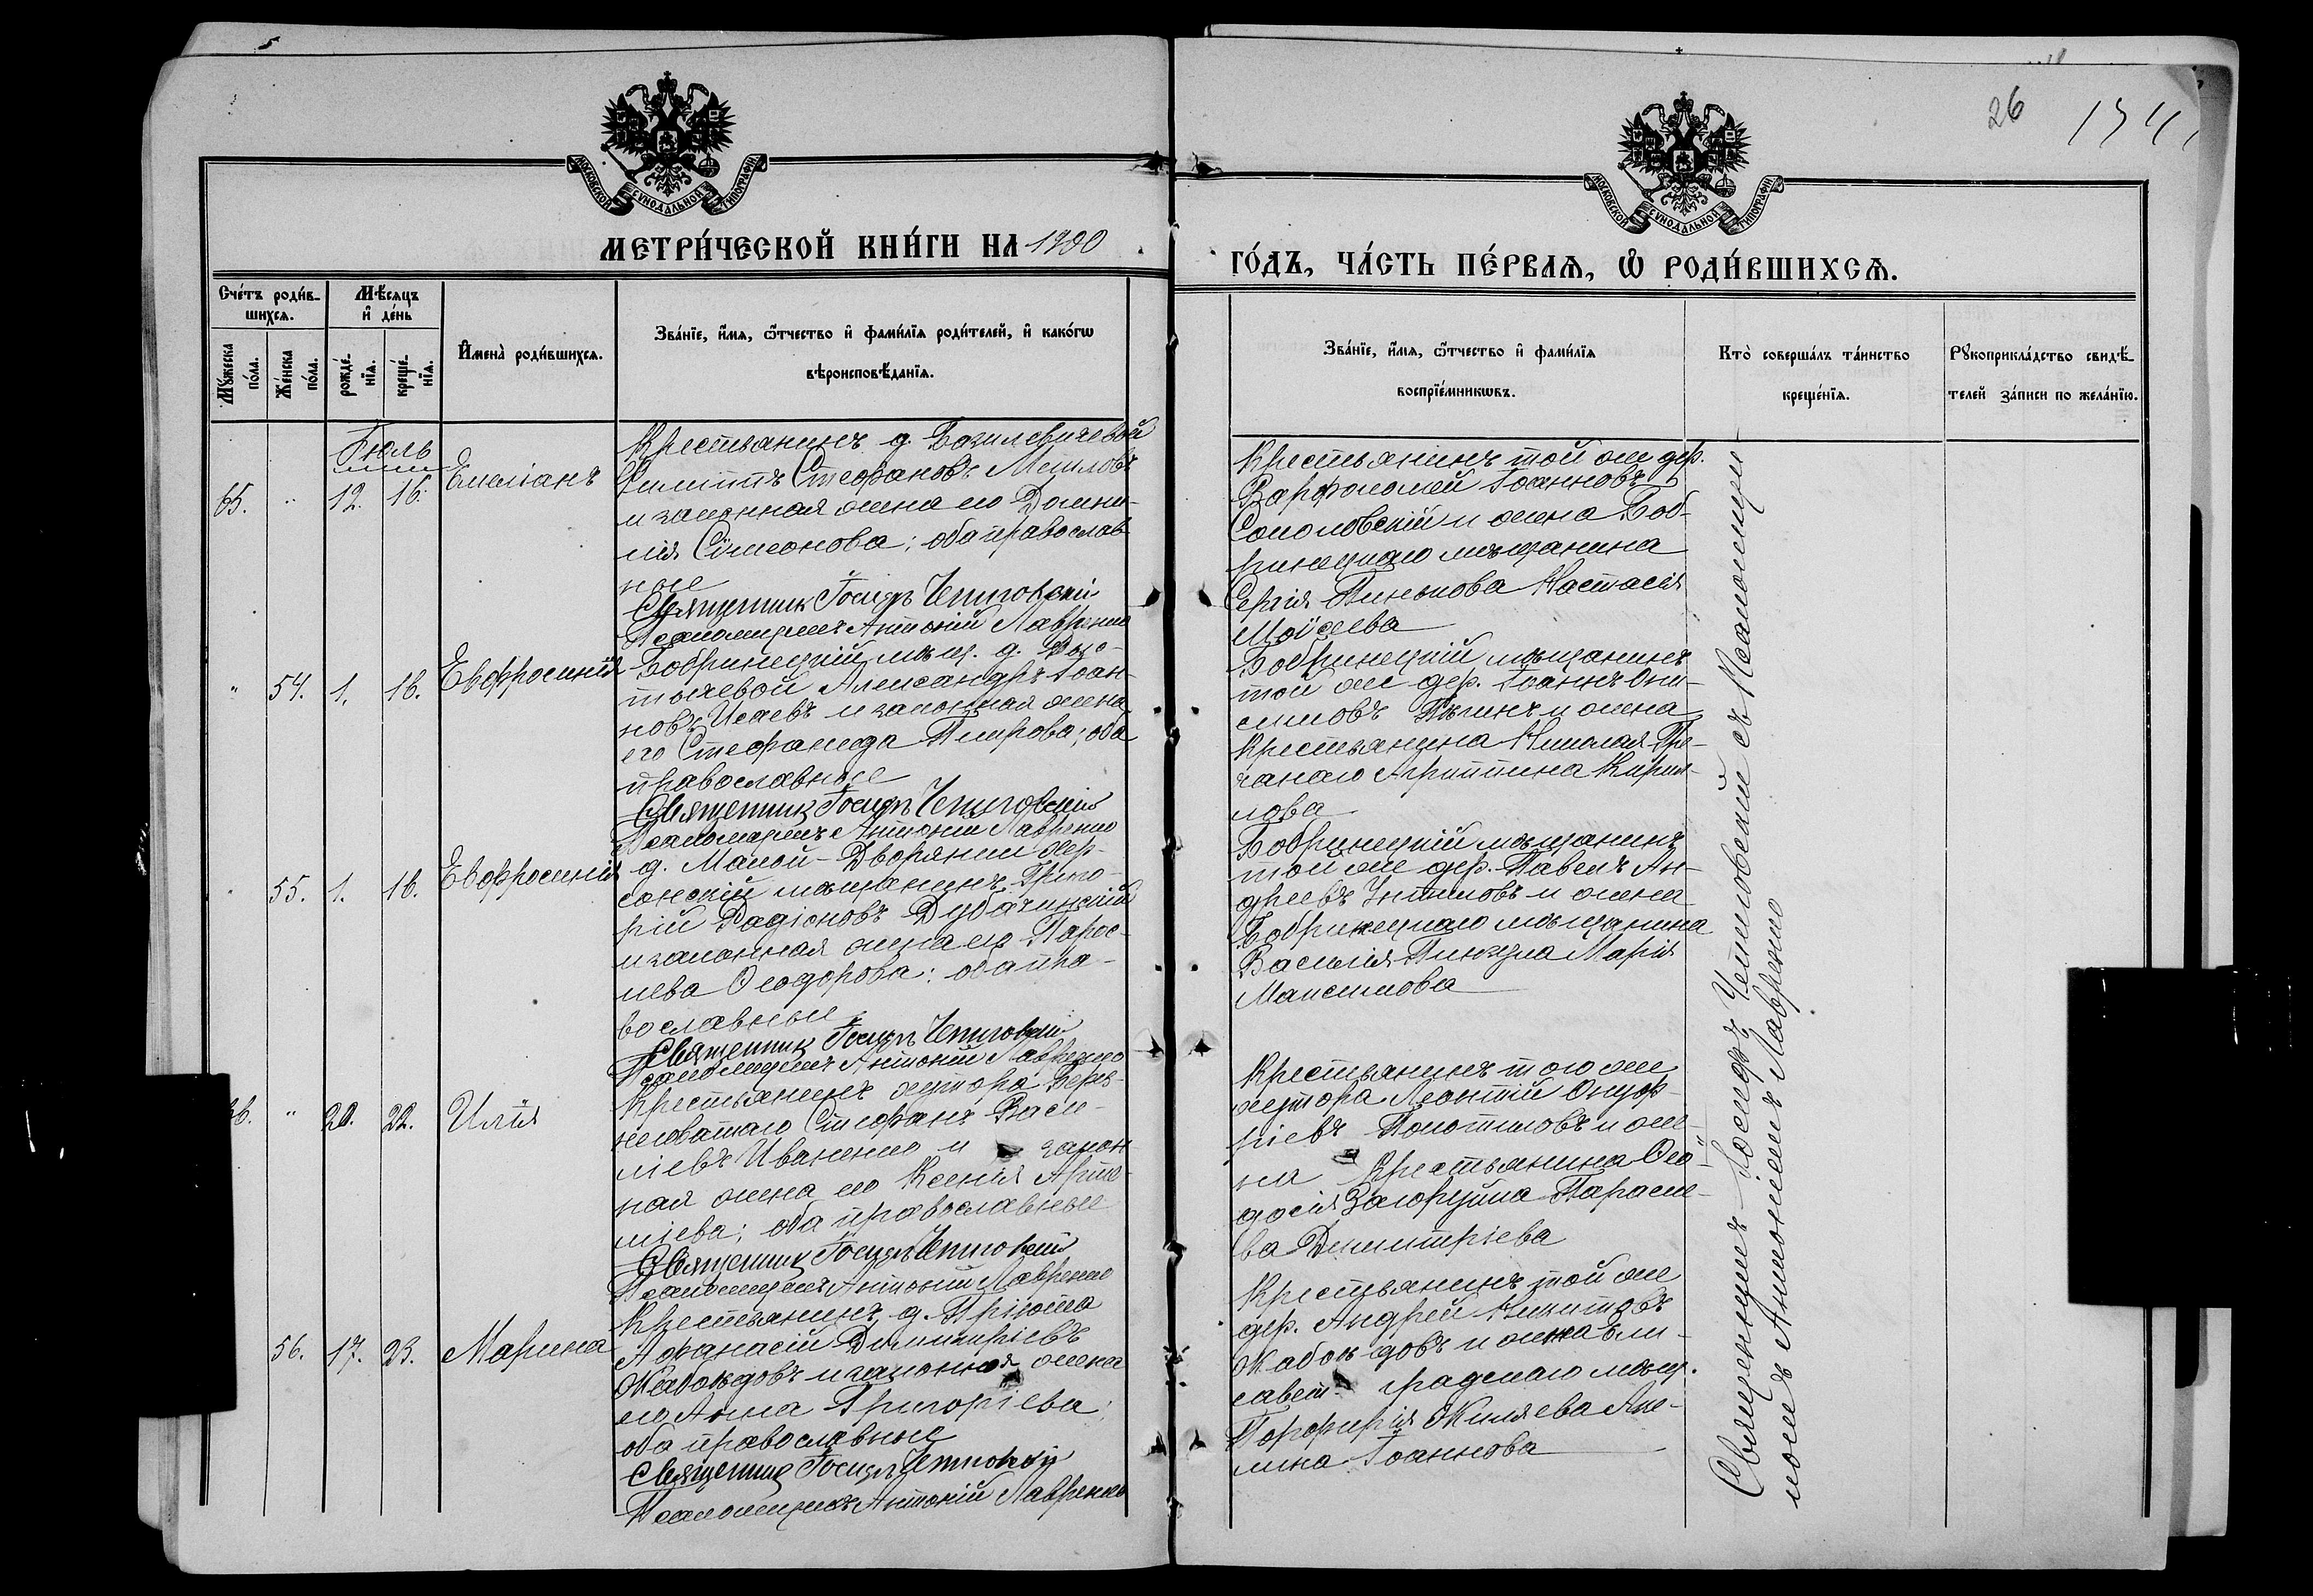 5
26
МОСКОВСКОЙ СѴНОДАЛЬНОЙ ТИПОГРАФІИ
МОСКОВСКОЙ СѴНОДАЛЬНОЙ ТИПОГРАФІИ
МЕТРИ́ЧЕСКОЙ КНИ́ГИ НА 1900
ГО́ДЪ, ЧА́СТЬ ПЕ́РВАѦ, Ѡ РОДИ́ВШИХСѦ.
Сче́тъ роди́в-
шихсѧ.
Мѣ́сѧцъ
и҆ де́нь
Мꙋ́жеска
по́ла.
Же́нска
по́ла.
рожде́-
нїѧ.
креще́-
нїѧ.
И҆мена̀ роди́вшихсѧ.
Зва́нїе, и҆́мѧ, ѻ҆́тчество и҆ фами́лїѧ роди́телей, и҆ како́гѡ
вѣроисповѣ́данїѧ.
Зва́нїе, и҆́мѧ, ѻ҆́тчество и҆ фами́лїѧ
воспрїе́мникѡвъ.
Кто̀ соверша́лъ та́инство
креще́нїѧ.
Рꙋкоприкла́дство свидѣ́-
телей за́писи по жела́нїю.
Іюль
65. " 12. 16. Емеліанъ
Крестьянинъ д.
Филиппъ Стефановъ
и законная жена его Домни-
кія Сімеонова; оба православ
ные
Священник Іосифъ Чепиговскій
Псаломщикъ Антоній Лавренко
Крестьянинъ той же дер.
Варфоломей Іоанновъ
Соколовскій и жена Боб-
ринецкаго мѣщанина
Сергія Пинькова Настасія
Моѵсеева
" 54. 1. 16. Евфросинія
Бобринецкій мѣщ. д.
Александръ Іоан-
новъ Исаевъ и законная жена
его Стефанида Пиирова; оба
православные
Священник Іосифъ Чепиговскій
Псаломщикъ Антоній Лавренко
Бобринецкій мѣщанинъ
той же дер. Іоаннъ Они-
симовъ и жена
Крестьянина Николая Гре-
чанаго Агриппина Кирил-
лова
" 55. 1. 16. Евфросинія
д. Малой-Дворянки Хер-
сонскій мѣщанинъ Григо-
рій Родіоновъ
и законная жена его Парас-
кева Ѳеодорова; оба пра-
вославные
Священник Іосифъ Чепиговскій
Псаломщикъ Антоній Лавренко
Бобринецкій мѣщанинъ
той же дер. Павелъ Ан-
дреевъ и жена
Бобринецкаго мѣщанина
Василія Марія
Максимова
66. " 20. 22. Илія
Крестьянинъ хутора
Стефанъ Васи-
ліевъ Иваненко и закон
ная жена его Ксенія Арте-
міева; оба православные
Священник Іосифъ Чепиговскій
Псаломщикъ Антоній Лавренко
Крестьянинъ того же
хутора Леонтій Онуф-
ріевъ и же-
на Крестьянина Ѳео-
досія Загоруйка Параске-
ва Димитріева
56. 17. 23. Марина
Крестьянинъ д. Пріюта
Афанасій Димитріевъ
Жабоѣдовъ и законная жена
его Анна Григоріева;
оба православные
Священник Іосифъ Чепиговскій
Псаломщикъ Антоній Лавренко
Крестьянинъ той же
дер. Андрей Никитовъ
Жабоѣдовъ и жена Ели-
савет- градскаго мѣщ.
Порфирія Жиляева Аке-
лина Іоаннова
Священникъ Іосифъ Чепиговскій съ Псаломщи-
комъ Антоніемъ Лавренко